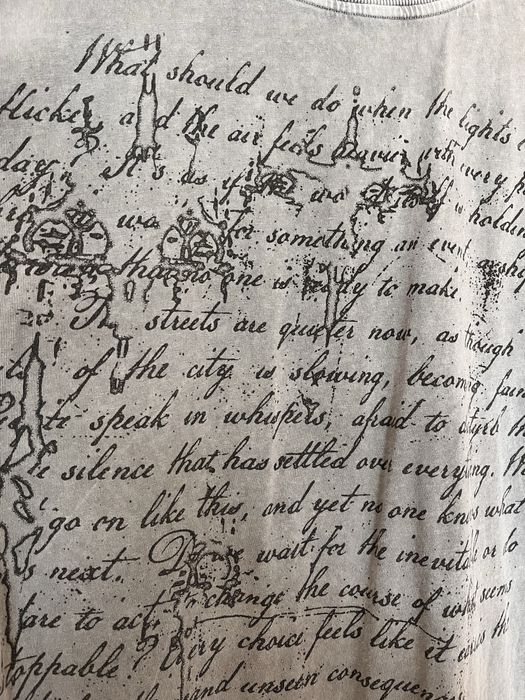 What should we do when the lights
flicker, and the air feels heavier with every
day. It's as if wo f holdin
wo for something an event
than no one is ready to make.
The streets are quieter now, as though
of the city is slowing, becoming fain
speak in whispers, afraid to disturb
silence that has settled over everything.
go on like this, and yet no one knows what
s next. Do we wait for the inevitable or
are to act, change the course of what seems
toppable? Every choice feels like it
and unseen consequen